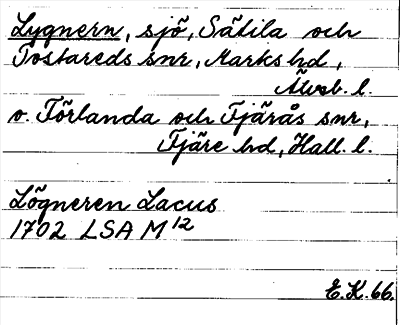 Lygnern, sjö, Sätila och
Tostareds snr, Marks hd,
Älvsb. l.
o. Förlanda och Fjärås snr,
Fjäre hd, Hall. l.
Lögneren Lacus
1702 LSA M 12
E.K. 66.